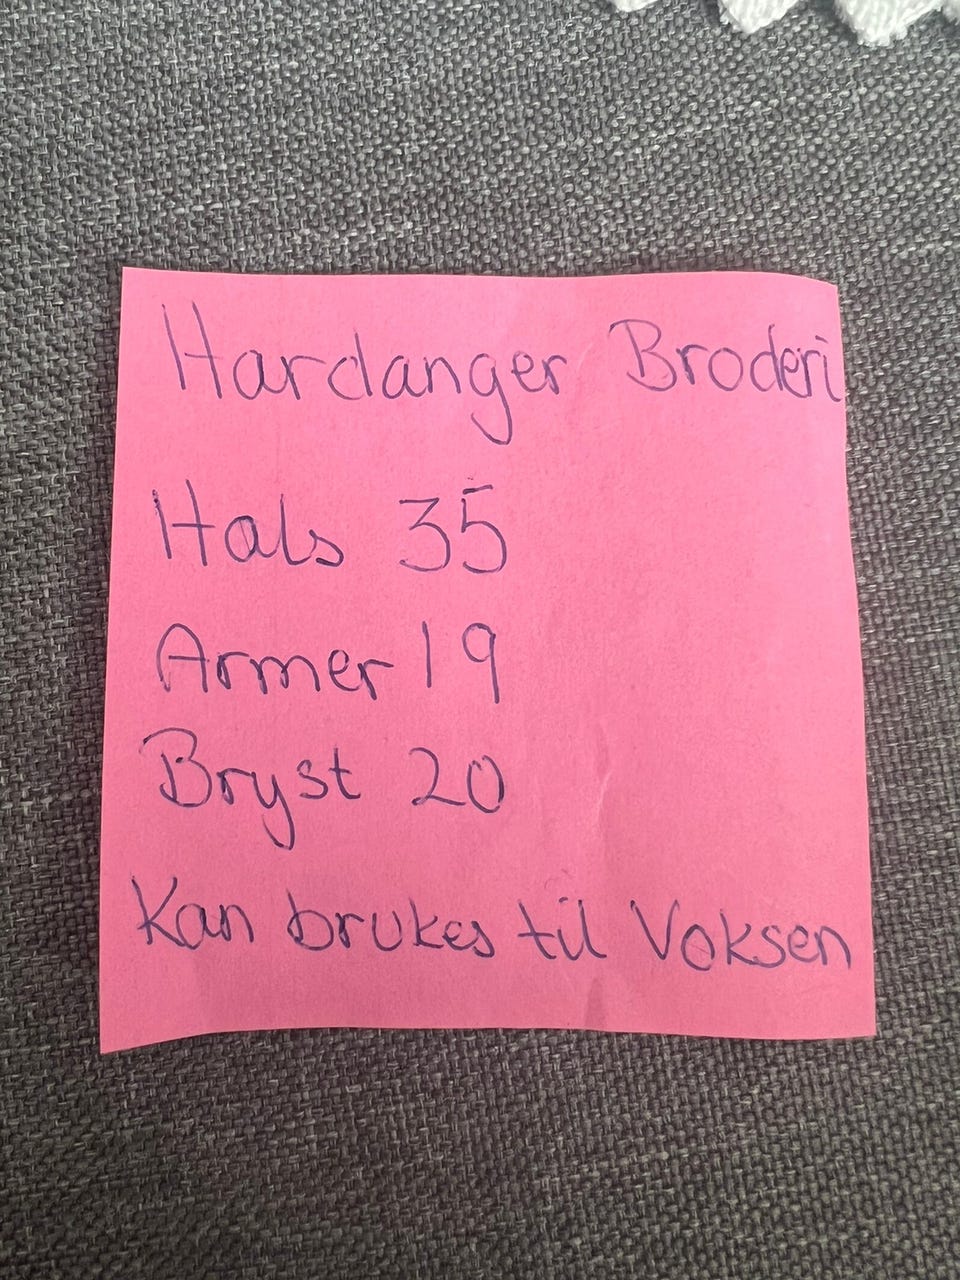 Hardanger Broderi
Hals 35
Armer 19
Bryst 20
Kan brukes til Voksen